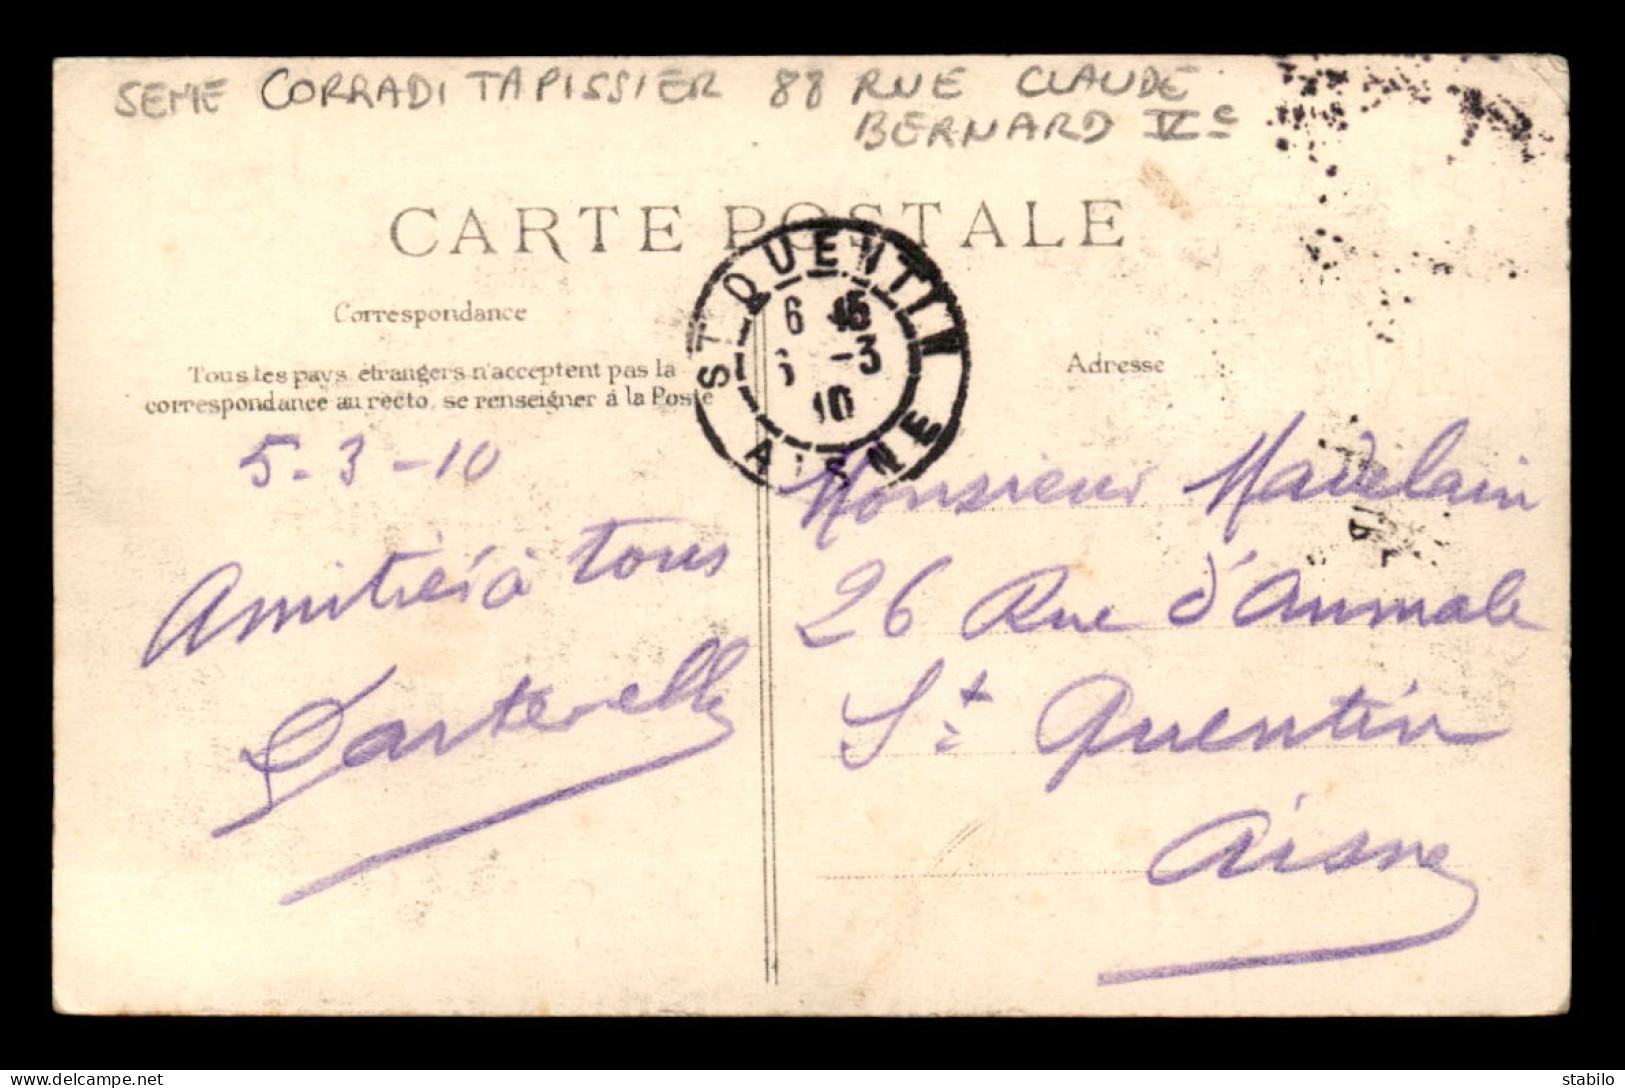 5EME CORRADI TAPISSIER 88 RUE CLAUDE
BERNARD Ve
CARTE POSTALE
Correspondance
Tous les pays étrangers n'acceptent pas la
correspondance au recto, se renseigner à la Poste
Adresse
ST QUENTIN
6 15
-3
10
AISNE
5-3-10
Amitiés à tous
Monsieur Madelain
26 Rue d'Aumale
St Quentin
Aisne
delcampe.net
stabilo